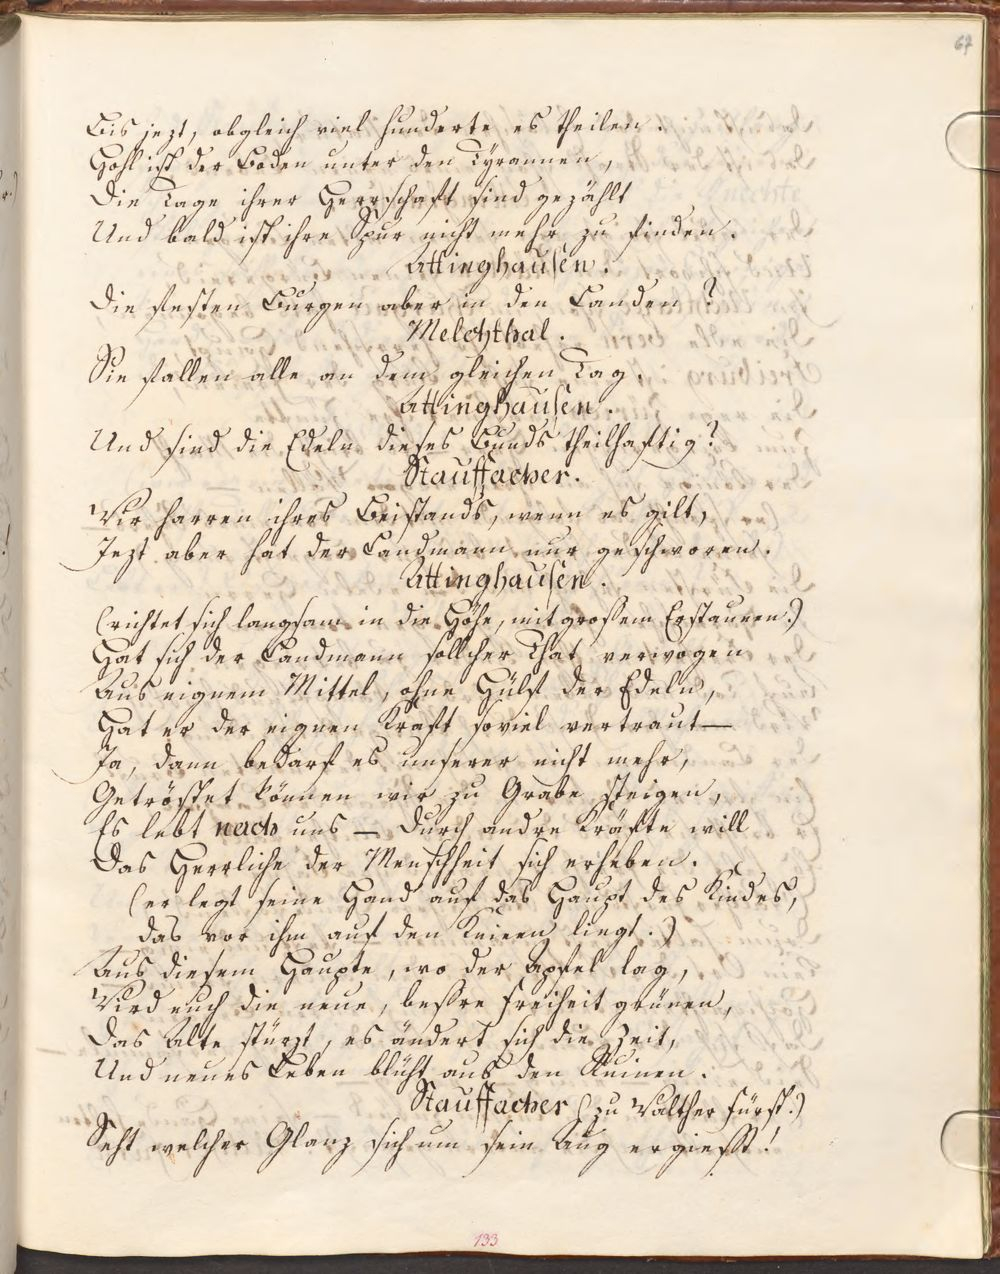 67
Bis jezt, obgleich viel Hunderte es theilen.
Hohl ist der Boden unter den Tyrannen,
Die Tage ihrer Herrschaft sind gezählt
Und bald ist ihre Spur nicht mehr zu finden.
Attinghausen.
Die festen Burgen aber in den Landen?
Melchthal.
Sie fallen alle an dem gleichen Tag.
Attinghausen.
Und sind die Edeln dieses Bunds theilhaftig?
Stauffacher.
Wir harren ihres Beistands, wenn es gilt,
Jezt aber hat der Landmann nur geschworen.
Attinghausen.
(richtet sich langsam in die Höhe, mit großem Erstaunen.)
Hat sich der Landmann sollcher That verwogen
Aus eignem Mittel, ohne Hülf der Edeln,
Hat er der eignen Kraft soviel vertraut—
Ja, dann bedarf es unserer nicht mehr,
Getröstet können wir zu Grabe steigen,
Es lebt nach uns — durch andre Kräfte will
Das Herrliche der Menschheit sich erheben.
(er legt seine Hand auf das Haupt des Kindes,
das vor ihm auf den Knieen liegt.)
Aus diesem Haupte, wo der Apfel lag,
Wird euch die neue, beßre Freiheit grünen,
Das Alte stürzt, es ändert sich die Zeit,
Und neues Leben blüht aus den Ruinen.
Stauffacher (zu Walther Fürst.)
Seht welcher Glanz sich um sein Aug ergießt!
133